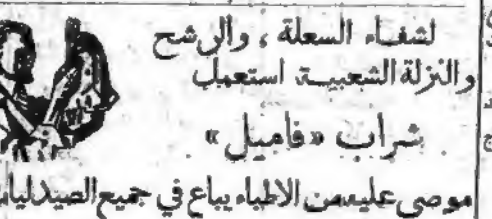 لشفاء السعلة ، والرشح
والنزلة الشعبية استعمل
شراب «فاميل»
موصى عليه من الاطباء يباع في جميع الصيدليات